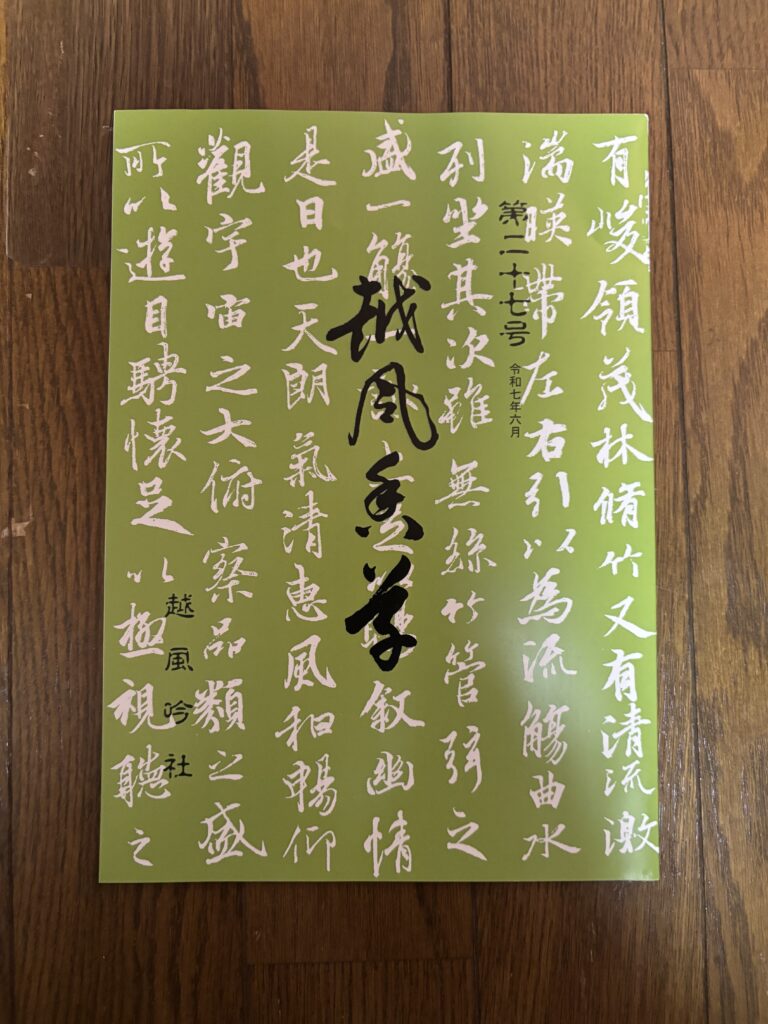 有峻領茂林脩竹又有清流激
湍暎帶左右引以為流觴曲水
第二十七号
令和七年六月
列坐其次雖無絲竹管弦之
越風香草
盛一觴
敘幽情
是日也天朗氣清惠風和暢仰
觀宇宙之大俯察品類之盛
越風吟社
所以遊目騁懷足以極視聽之